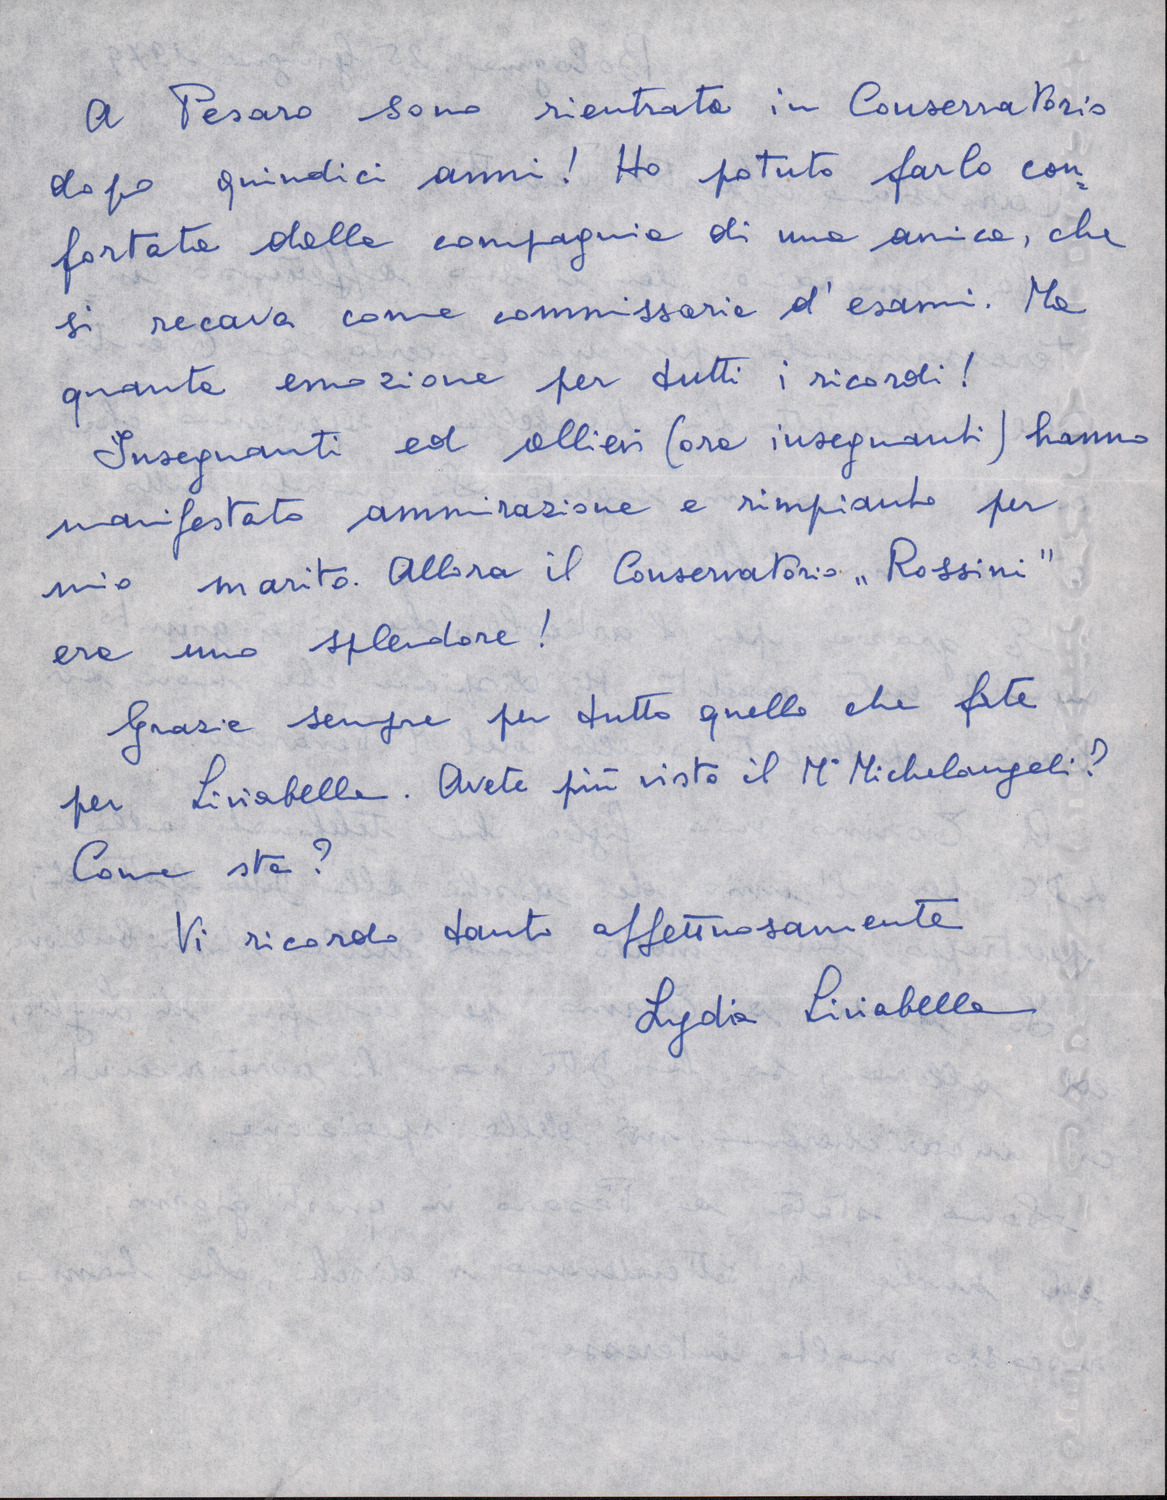 A Pesaro sono rientrata in Conservatorio
dopo quindici anni! Ho potuto farlo con=
fortata dalla compagnia di una amica, che
si recava come commissaria d'esami. Ma
quanta emozione per tutti i ricordi!
Insegnanti ed allievi (ora insegnanti) hanno
manifestato ammirazione e rimpianto per
mio marito. Allora il Conservatorio „Rossini"
era uno splendore!
Grazie sempre per tutto quello che fate
per Liviabella. Avete più visto il M° Michelangeli?
Come sta?
Vi ricordo tanto affettuosamente
Lydia Liviabella